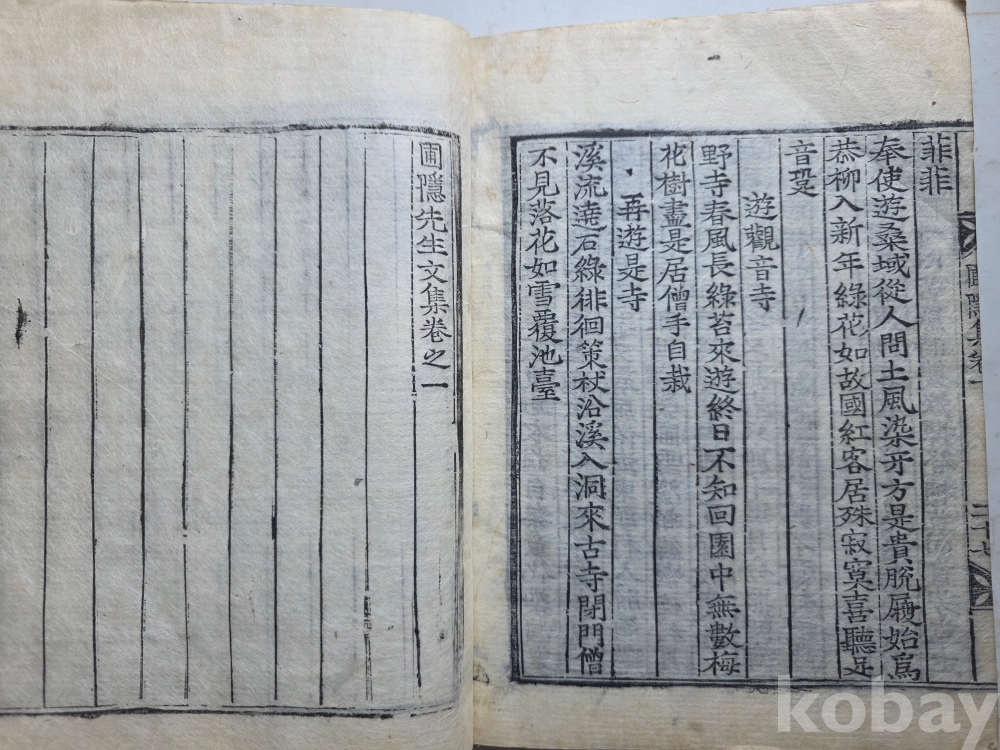 菲菲
奉使遊桑域從人問土風染牙方是貴脫履始爲
恭柳入新年綠花如故國紅客居殊寂寞喜聽足
音跫
遊觀音寺
野寺春風長綠苔來遊終日不知回園中無數梅
花樹盡是居僧手自栽
再遊是寺
溪流遶石綠徘徊策杖沿溪入洞來古寺閉門僧
不見落花如雪覆池臺
圃隱集卷一
二十七
圃隱先生文集卷之一
kobay